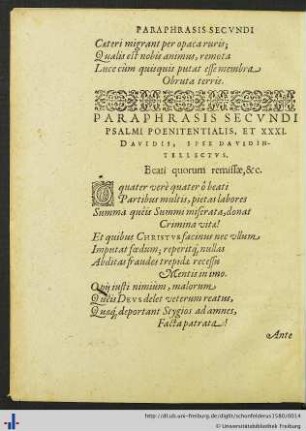 PARAPHRASIS SECVNDI
Cæteri migrant per opaca ruris;
Qualis est nobis animus, remota
Luce cùm quisquis putat esse membra
Obruta terris.
PARAPHRASIS SECVNDI
PSALMI POENITENTIALIS, ET XXXI.
DAVIDIS, SIVE DAVIDIN-
TELLECTVS.
Beati quorum remissæ, &c.
O quater verè quater ô beati
Partibus multis, pietas labores
Summa queis Summi miserata, donat
Crimina vitæ!
Et quibus CHRISTVS facinus nec vllum
Imputat fœdum; reperitq; nullas
Abditas fraudes trepidæ recessu
Mentis in imo.
O iusti nimiùm, malorum
Queis DEVS delet veterum reatus,
deportant Stygios ad amnes,
Facta patrata!
Ante
http://dl.ub.uni-freiburg.de/diglit/schonfelderus1580/0014
© Universitätsbibliothek Freiburg